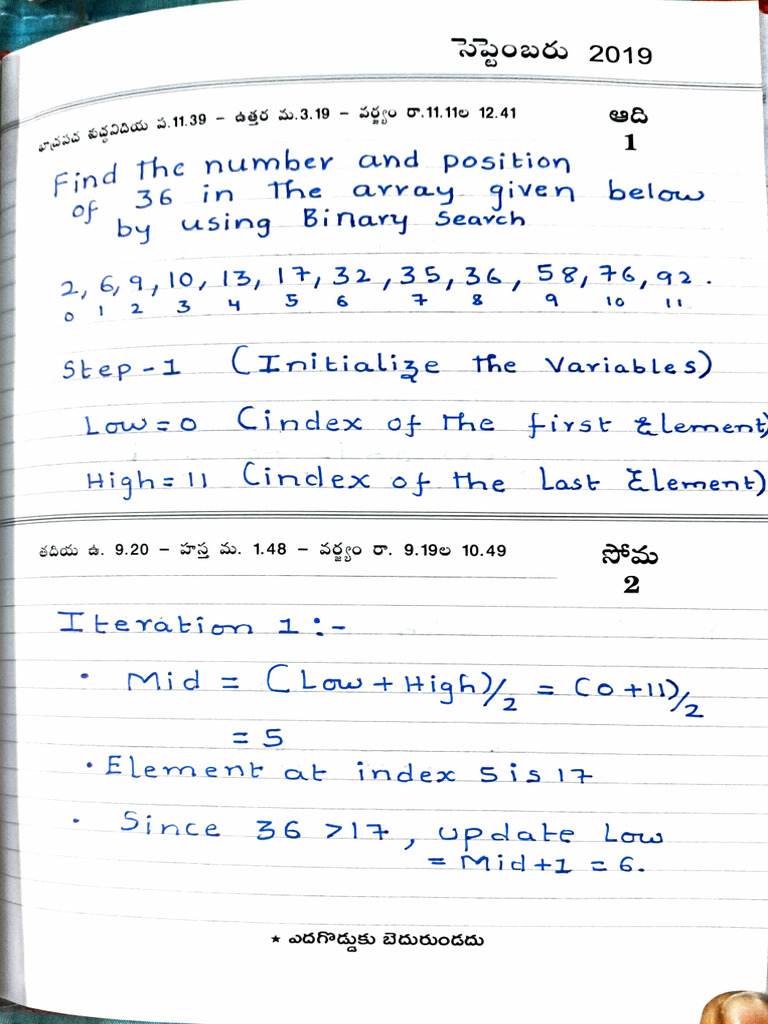 సెప్టెంబరు 2019
భాద్రపద శుద్ధవిదియ ప.11.39 – ఉత్తర మ.3.19 – వర్జ్యం రా.11.11ల 12.41
ఆది
1
Find the number and position
of 36 in the array given below
by using Binary Search
2, 6, 9, 10, 13, 17, 32, 35, 36, 58, 76, 92.
0 1 2 3 4 5 6 7 8 9 10 11
Step-1 (Initialize the Variables)
Low = 0 (index of the first Element)
High = 11 (index of the Last Element)
తదియ ఉ. 9.20 – హస్త మ. 1.48 – వర్జ్యం రా. 9.19ల 10.49
సోమ
2
Iteration 1 :-
• Mid = (Low + High)/2 = (0+11)/2
= 5
• Element at index 5 is 17
• Since 36 >17, update Low
= Mid+1 = 6.
★ ఎదగొడ్డుకు బెదురుండదు